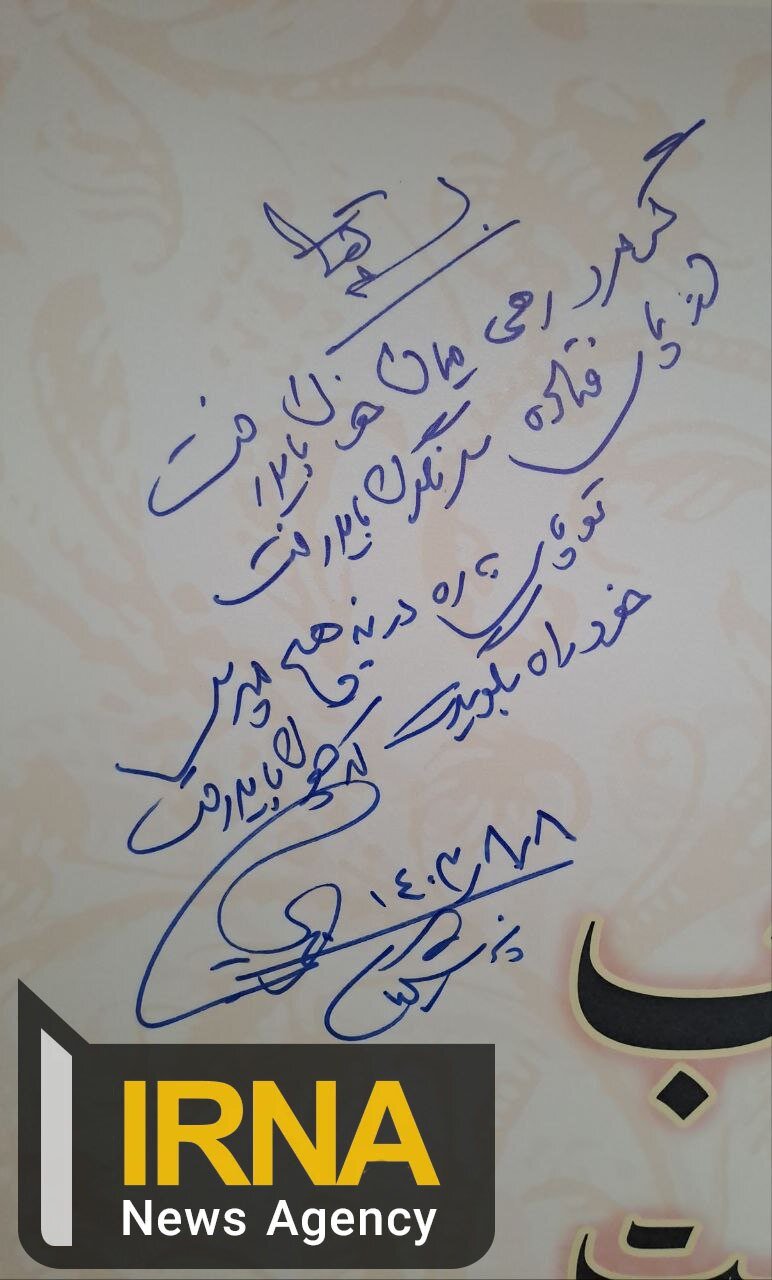 بسمه تعالی
گر مرد رهی میان خون باید رفت
از پای فتاده سرنگون باید رفت
تو پای به ره در نه هیچ مپرس
خود راه بگویدت که چون باید رفت
۱۴۰۳/۸/۸
IRNA
News Agency